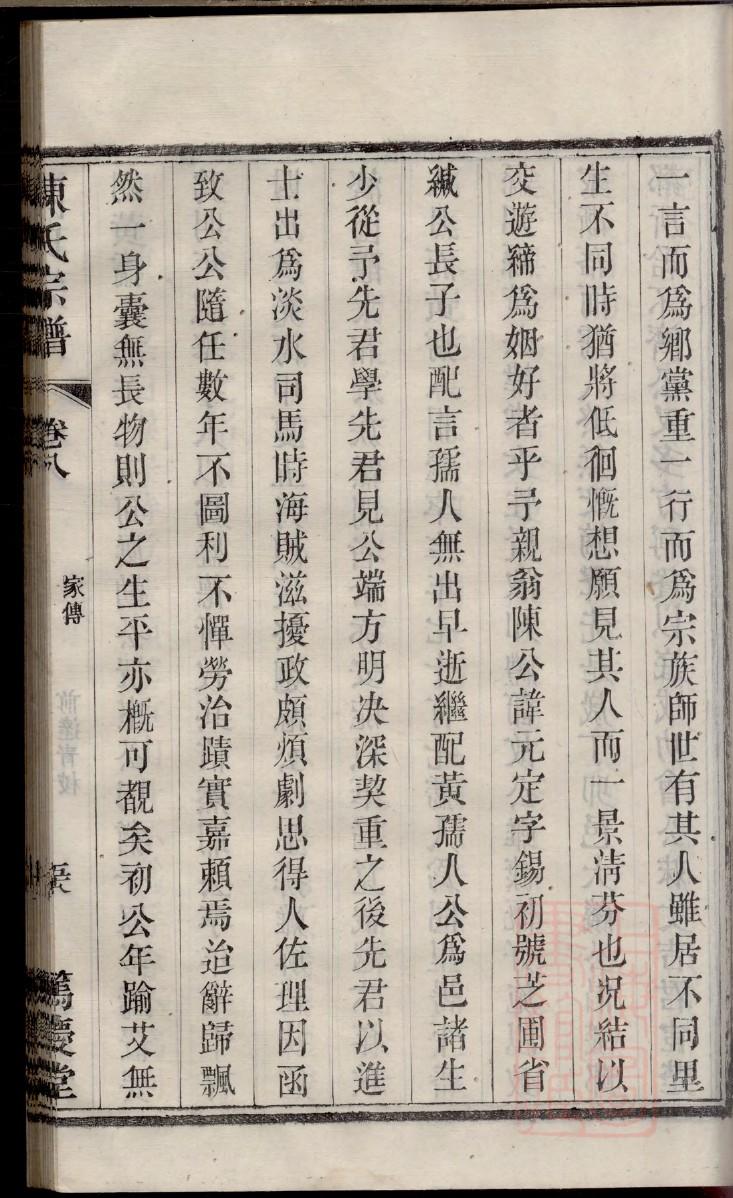 一言而爲鄉黨重一行而爲宗族師世有其人雖居不同里
生不同時猶將低徊慨想願見其人而一景淸芬也况結以
交遊締爲姻好者乎予親翁陳公諱元定字錫初號芝圃省
緘公長子也配言孺人無出早逝繼配黃孺人公爲邑諸生
少從予先君學先君見公端方明决深契重之後先君以進
士出爲淡水司馬時海賊滋擾政頗煩劇思得人佐理因函
致公公隨任數年不圖利不憚勞治蹟實嘉賴焉迨辭歸飄
然一身囊無長物則公之生平亦槪可覩矣初公年踰艾無
陳氏宗譜
卷八
家傳
篤慶堂